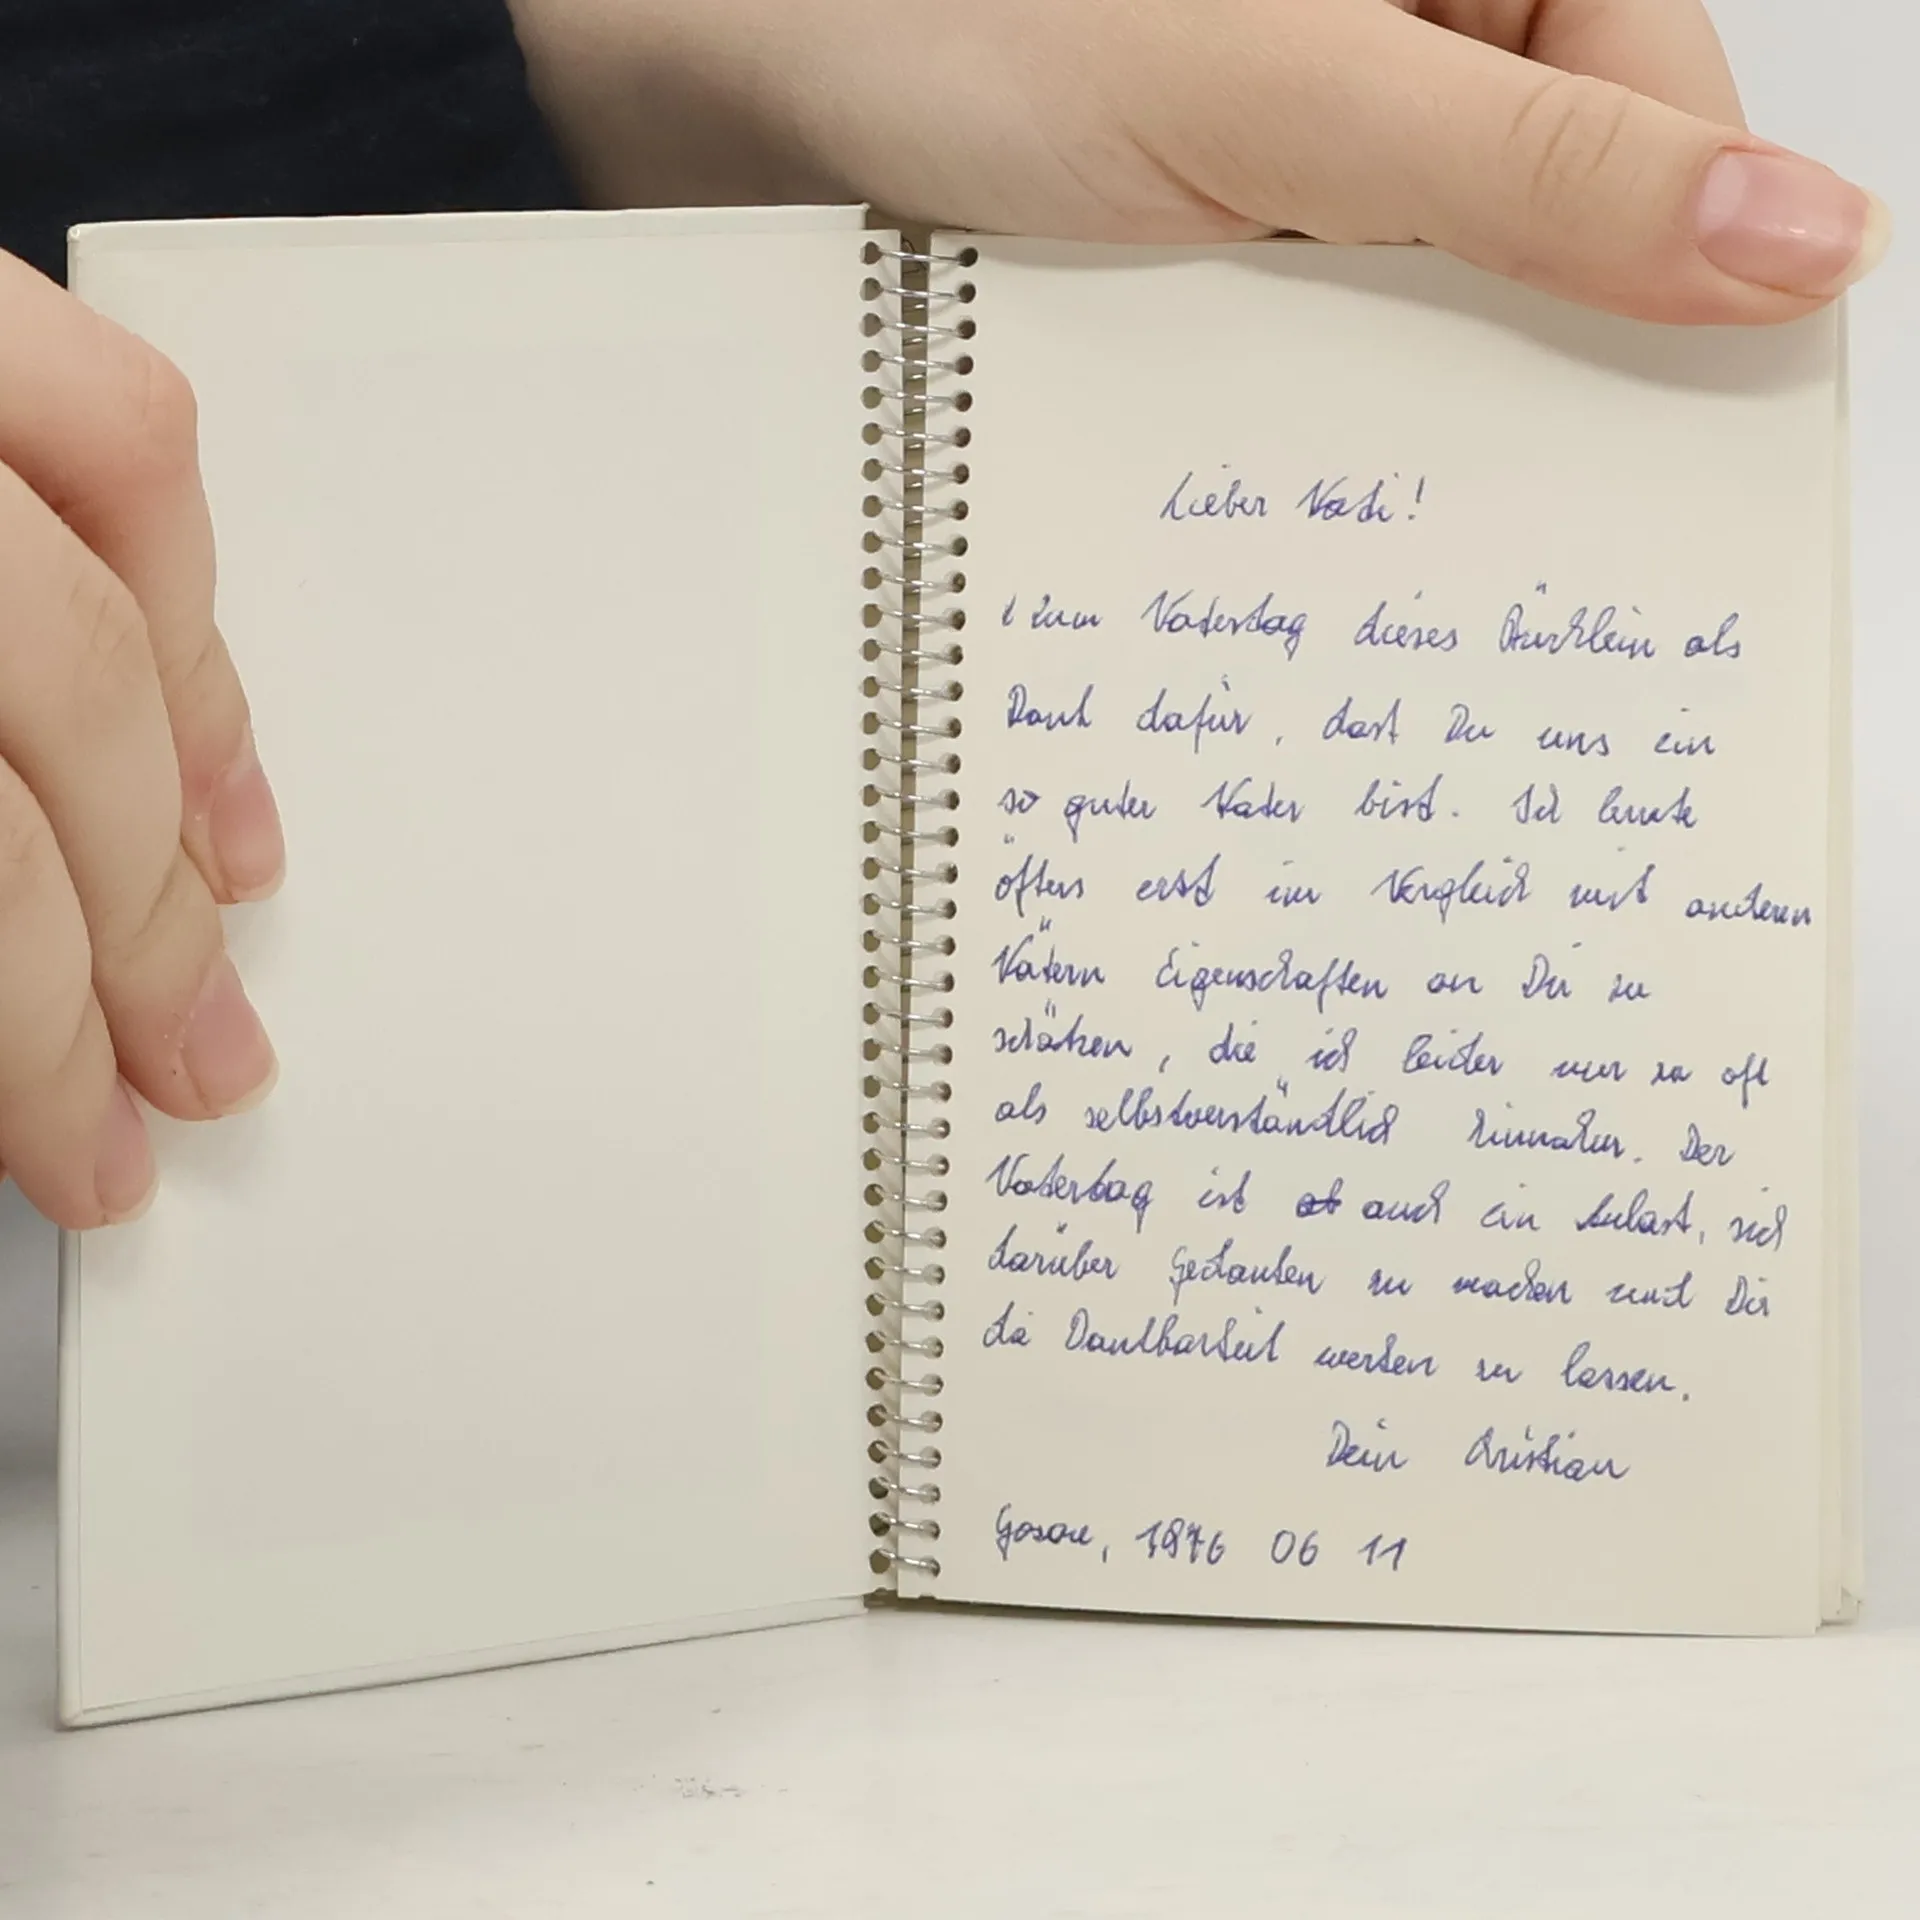 Lieber Vati!
Zum Vatertag dieses Büchlein als
Dank dafür, dass Du uns ein
so guter Vater bist. Ich lernte
öfters erst im Vergleich mit anderen
Vätern Eigenschaften an Dir zu
schätzen, die ich leider nur zu oft
als selbstverständlich hinnahm. Der
Vatertag ist auch ein Anlass, sich
darüber Gedanken zu machen und Dir
die Dankbarkeit werden zu lassen.
Dein Christian
Gossau, 1976 06 11